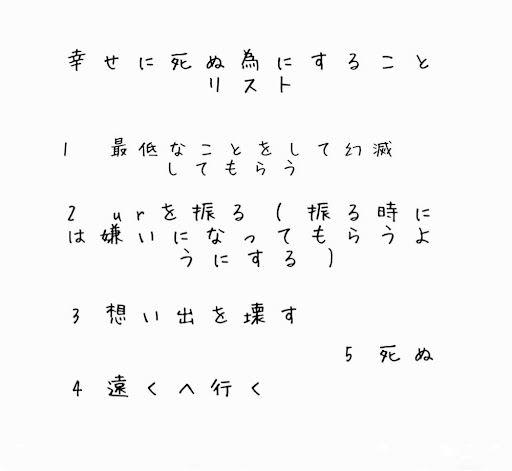 幸せに死ぬ為にすること
リスト
1 最低なことをして幻滅
してもらう
2 urを振る(振る時に
は嫌いになってもらうよ
うにする)
3 想い出を壊す
5 死ぬ
4 遠くへ行く